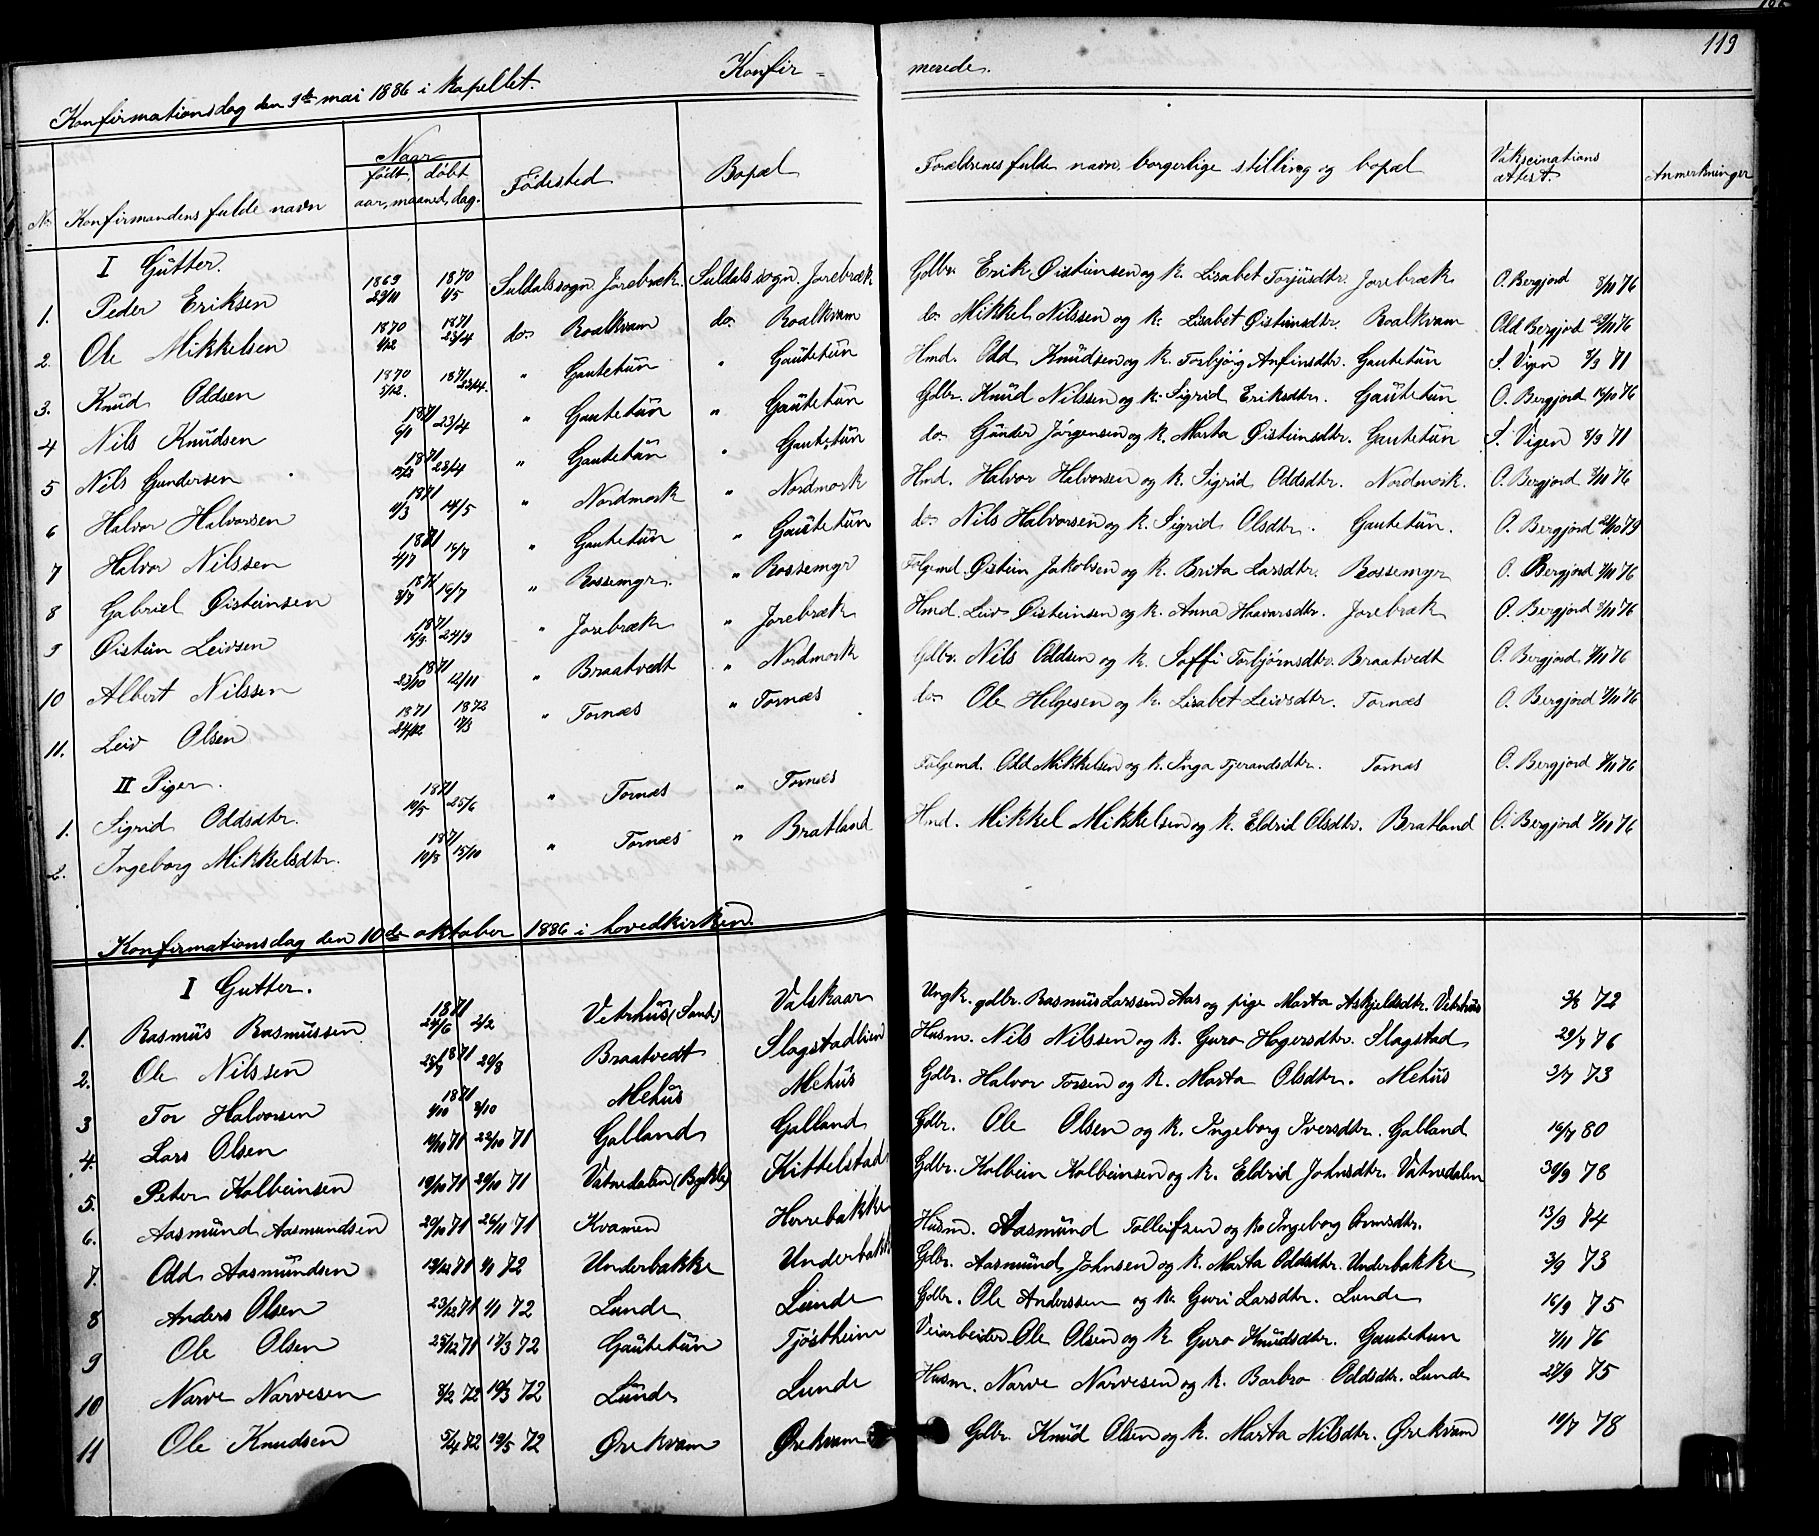 119
Konfir- merede.
Konfirmationsdag den 9de mai 1886 i kapellet.
No. Konfirmandens fulde navn Naar født, døbt aar, maaned, dag. Fødested Bopæl Forældrenes fulde navn, borgerlige stilling og bopæl Vakscinations attest. Anmerkninger
I Gutter.
1. Peder Eriksen 1869 29/11 1870 1/5 Suldals sogn Jorebræk. Suldals sogn Jorebræk Gdbr. Erik Øistensen og k. Lisabet Torjusdtr. Jorebræk O. Bergjord 7/11 76
2. Ole Mikkelsen 1870 4/12 1871 23/4 do. Roalkvam do. Roalkvam do. Mikkel Nilssen og k. Lisabet Øistensdtr. Roalkvam Odd Bergjord 29/11 76
3. Knud Oddsen 1870 5/12. 1871 23/4. " Gautetun " Gautetun Hmd. Odd Knudsen og k. Torbjøg Anfinsdtr. Gautetun S. Vigen 7/9 71
4 Nils Knudsen 1871 6/1 23/4 " Gautetun " Gautetun Gdbr. Knud Nilssen og k. Sigrid Eriksdtr. Gautetun O. Bergjord 14/10 76
5 Nils Gundersen 1871 15/2 23/4 " Gautetun " Gautetun do. Gunder Jørgensen og k. Marta Øistensdtr. Gautetun S. Vigen 7/9 71
6 Halvor Halvorsen 1871 4/3 14/5 " Nordmork " Nordmork Hmd. Halvor Halvorsen og k. Sigrid Oddsdtr. Nordmork. O. Bergjord 7/11 76
7 Halvor Nilssen 1871 2/7 16/7 " Gautetun " Gautetun do. Nils Halvorsen og k. Sigrid Olsdtr. Gautetun. O. Bergjord 21/10 79
8 Gabriel Øisteinsen 1871 3/7 16/7 " Rossemyr. " Rossemyr Følgemd. Øistein Jakobsen og k. Brita Larsdtr. Rossemyr O. Bergjord 7/11 76
9 Øistein Leivsen 1871 15/9 24/9 " Jorebræk " Jorebræk Hmd. Leiv Øisteinsen og k. Anna Haavarsdtr. Jorebræk O. Bergjord 7/11 76
10 Albert Nilssen 1871 23/10 12/11 " Braatvedt " Nordmork Gdbr. Nils Oddsen og k. Soffi Torbjørnsdtr. Braatvedt O. Bergjord 7/11 76
11. Leiv Olsen 1871 24/12 1872 17/3 " Tornæs " Tornæs do. Ole Helgesen og k. Lisabet Leivsdtr. Tornæs O. Bergjord 7/11 76
II Piger.
1. Sigrid Oddsdtr. 1871 19/5 25/6 " Tornæs " Tornæs Følgemd. Odd Mikkelsen og k. Inga Tjerandsdtr. Tornæs O. Bergjord 7/11 76
2. Ingeborg Mikkelsdtr. 1871 19/8 15/10 " Tornæs " Bratland Hmd. Mikkel Mikkelsen og k. Eldrid Olsdtr. Bratland O. Bergjord 7/11 76
Konfirmationsdag den 10de oktober 1886 i hovedkirken.
I Gutter.
1. Rasmus Rasmussen 1871 24/6 2/2 Vetrhus (Sand) Valskaar Ungk. gdbr. Rasmus Larssen Aas og pige Marta Askjelsdtr. Vetrhus 3/8 72
2. Ole Nilssen 1871 25/7 20/8 Braatvedt Slagstadlien Husm. Nils Nilssen og k. Guro Hogersdtr. Slagstad 29/7 76
3 Tor Halvorsen 1871 1/10 8/10 Mehus Mehus Gdbr. Halvor Torsen og k. Marta Olsdtr. Mehus 3/7 73
4. Lars Olsen 14/10 71 22/10 71 Galland Galland Gdbr. Ole Olsen og k. Ingeborg Iversdtr. Galland 16/7 80
5. Peter Kolbeinsen 19/10 71 29/10 71 Vatnedalen (Bykle) Kittelstad Gdbr. Kolbein Kolbeinsen og k. Eldrid Johnsdtr. Vatnedalen 30/9 78
6. Aasmund Aasmundsen 20/10 71 26/11 71 Kvamen Horrebakke Husm. Aasmund Tolleifsen og k. Ingeborg Ormsdtr. 13/9 74
7. Odd Aasmundsen 13/12 71 1/1 72 Underbakke Underbakk Gdbr. Aasmund Johnsen og k. Marta Oddsdtr. Underbakke 3/9 73
8 Anders Olsen 23/12 71 1/1 72 Lunde Lunde Gdbr. Ole Anderssen og k. Guri Larsdtr. Lunde 16/9 75
9 Ole Olsen 25/12 71 17/3 72 Gautetun Tjøstheim Veiarbeider Ole Olsen og k. Guro Knudsdtr. Gautetun 7/11 76
10 Narve Narvesen 8/2 72 10/3 72 Lunde Lunde Husm. Narve Narvesen og k. Barbro Oddsdtr. Lunde 27/9 75
11 Ole Knudsen 5/4 72 19/5 72 Ørekvam Ørekvam Gdbr. Knud Olsen og k. Marta Nilsdtr. Ørekvam 19/7 78